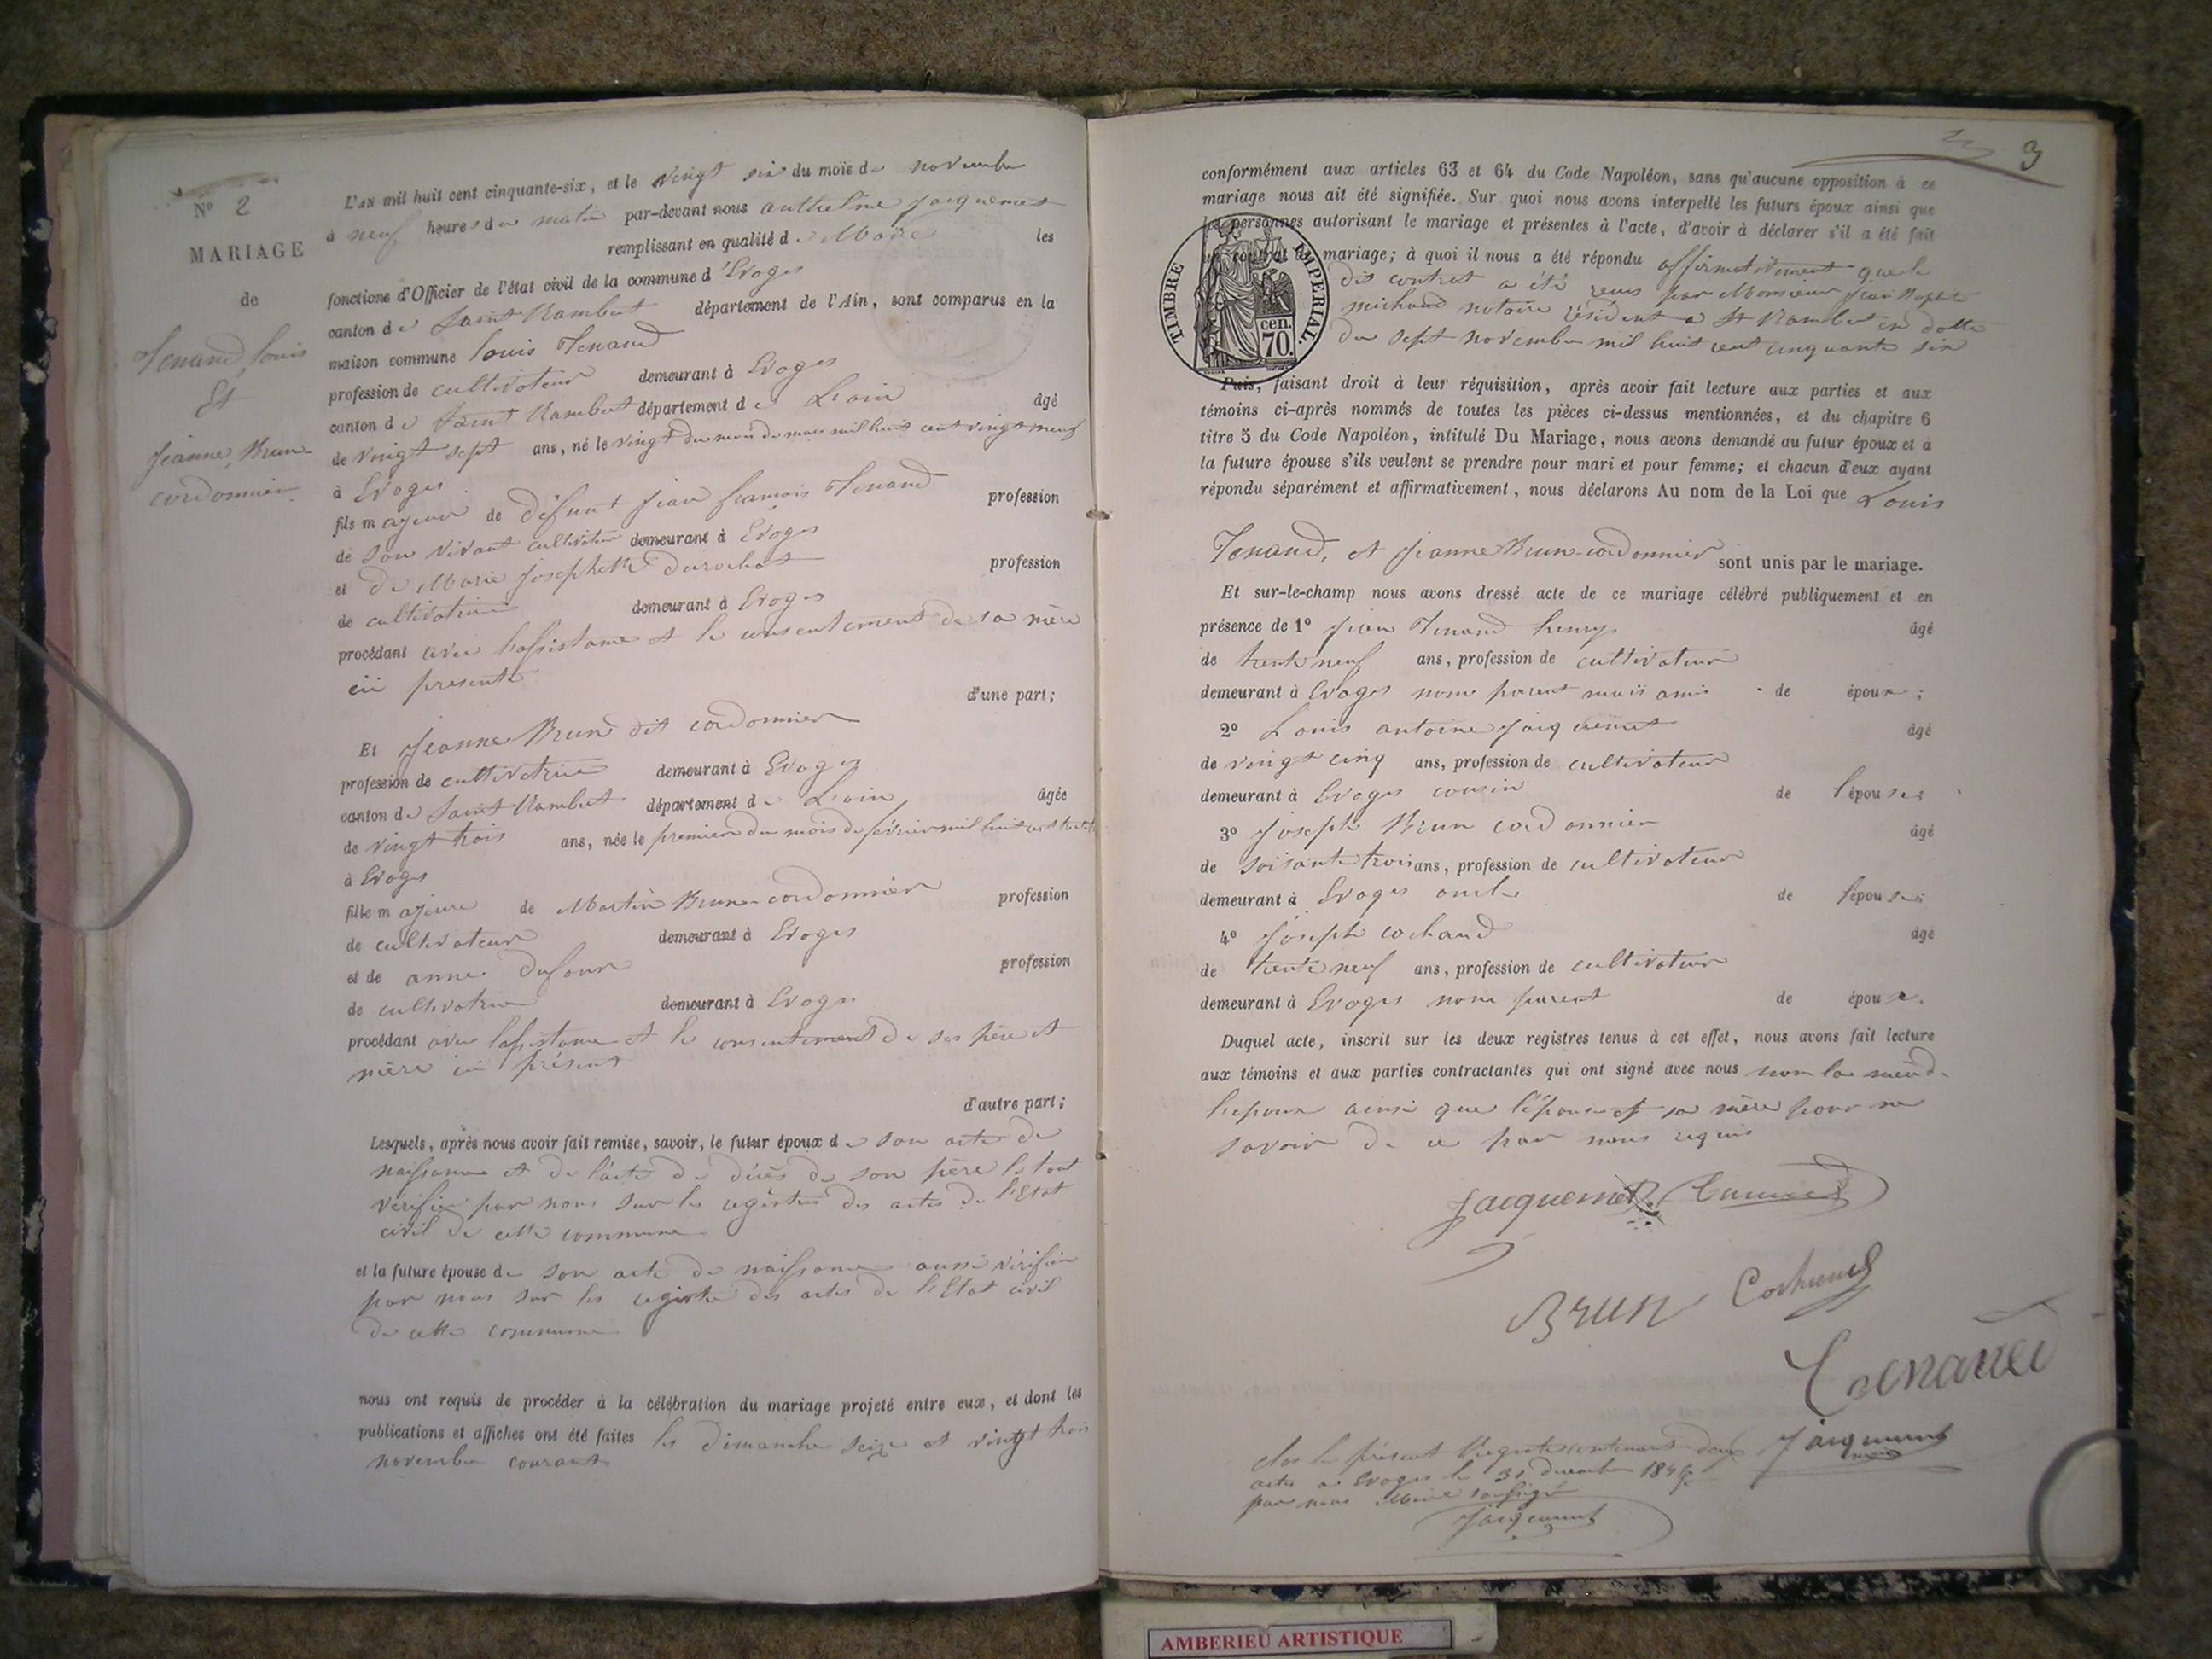 N° 2
MARIAGE
de
Tenand, Louis
Et
Jeanne, Brun-
cordonnier.
L'AN mil huit cent cinquante-six, et le vingt six du mois de novembre
à neuf heures du matin par-devant nous anthelme Jacquemet
remplissant en qualité de Maire les
fonctions d'Officier de l'état civil de la commune d'Evoges
canton de Saint Rambert département de l'Ain, sont comparus en la
maison commune Louis Tenand
profession de cultivateur demeurant à Evoges
canton de Saint Rambert département de L'ain âgé
de vingt sept ans, né le vingt du mois de mars mil huit cent vingt neuf
à Evoges
fils majeur de défunt Jean francois Tenand profession
de son vivant cultivateur demeurant à Evoges
et de Marie Josephette Durochat profession
de cultivatrice demeurant à Evoges
procédant avec l'assistance et le consentement de sa mère
ici presente
d'une part;
Et Jeanne Brun dit cordonnier
profession de cultivatrice demeurant à Evoges
canton de Saint Rambert département de L'ain âgée
de vingt trois ans, née le premier du mois de février mil huit cent trente
à Evoges
fille majeure de Martin Brun-cordonnier profession
de cultivateur demeurant à Evoges
et de anne Dufour profession
de cultivatrice demeurant à Evoges
procédant avec l'assistance et le consentement de ses père et
mère ici présents
d'autre part;
Lesquels, après nous avoir fait remise, savoir, le futur époux de son acte de
naissance et de l'acte de décès de son père le tout
vérifié par nous sur les registres des actes de l'Etat
civil de cette commune
et la future épouse de son acte de naissance aussi vérifié
par nous sur les registre des actes de l'Etat civil
de cette commune
nous ont requis de procéder à la célébration du mariage projeté entre eux, et dont les
publications et affiches ont été faites les dimanche seize et vingt trois
novembre courant
3
conformément aux articles 63 et 64 du Code Napoléon, sans qu'aucune opposition à ce
mariage nous ait été signifiée. Sur quoi nous avons interpellé les futurs époux ainsi que
les personnes autorisant le mariage et présentes à l'acte, d'avoir à déclarer s'il a été fait
un contrat de mariage; à quoi il nous a été répondu affirmativement que le
dit contrat a été reçu par Monsieur Jean Baptiste
michaud notaire résident a St Rambert en datte
du sept novembre mil huit cent cinquante six
TIMBRE IMPERIAL.
cen.
70.
Puis, faisant droit à leur réquisition, après avoir fait lecture aux parties et aux
témoins ci-après nommés de toutes les pièces ci-dessus mentionnées, et du chapitre 6
titre 5 du Code Napoléon, intitulé Du Mariage, nous avons demandé au futur époux et à
la future épouse s'ils veulent se prendre pour mari et pour femme; et chacun d'eux ayant
répondu séparément et affirmativement, nous déclarons Au nom de la Loi que Louis
Tenand, et Jeanne Brun-cordonnier sont unis par le mariage.
Et sur-le-champ nous avons dressé acte de ce mariage célébré publiquement et en
présence de 1° Jean Tenand henry âgé
de trente neuf ans, profession de cultivateur
demeurant à Evoges nom parent mais amis de époux;
2° Louis antoine Jacquemet âgé
de vingt cinq ans, profession de cultivateur
demeurant à Evoges cousin de l'épouse;
3° Joseph Brun cordonnier âgé
de soisante trois ans, profession de cultivateur
demeurant à Evoges oncle de l'épouse;
4° Joseph cochand âgé
de trente neuf ans, profession de cultivateur
demeurant à Evoges nom parent de époux.
Duquel acte, inscrit sur les deux registres tenus à cet effet, nous avons fait lecture
aux témoins et aux parties contractantes qui ont signé avec nous non la mère de
l'epoux ainsi que l'épouse et sa mère pour ne
savoir de ce par nous requis
Jacquemet
BRUN Cochand
Tenand
Jacquemet
clos le présent Registre contenant deux
actes a Evoges le 31 decembre 1856
par nous Maire soussigné
Jacquemet
AMBERIEU ARTISTIQUE